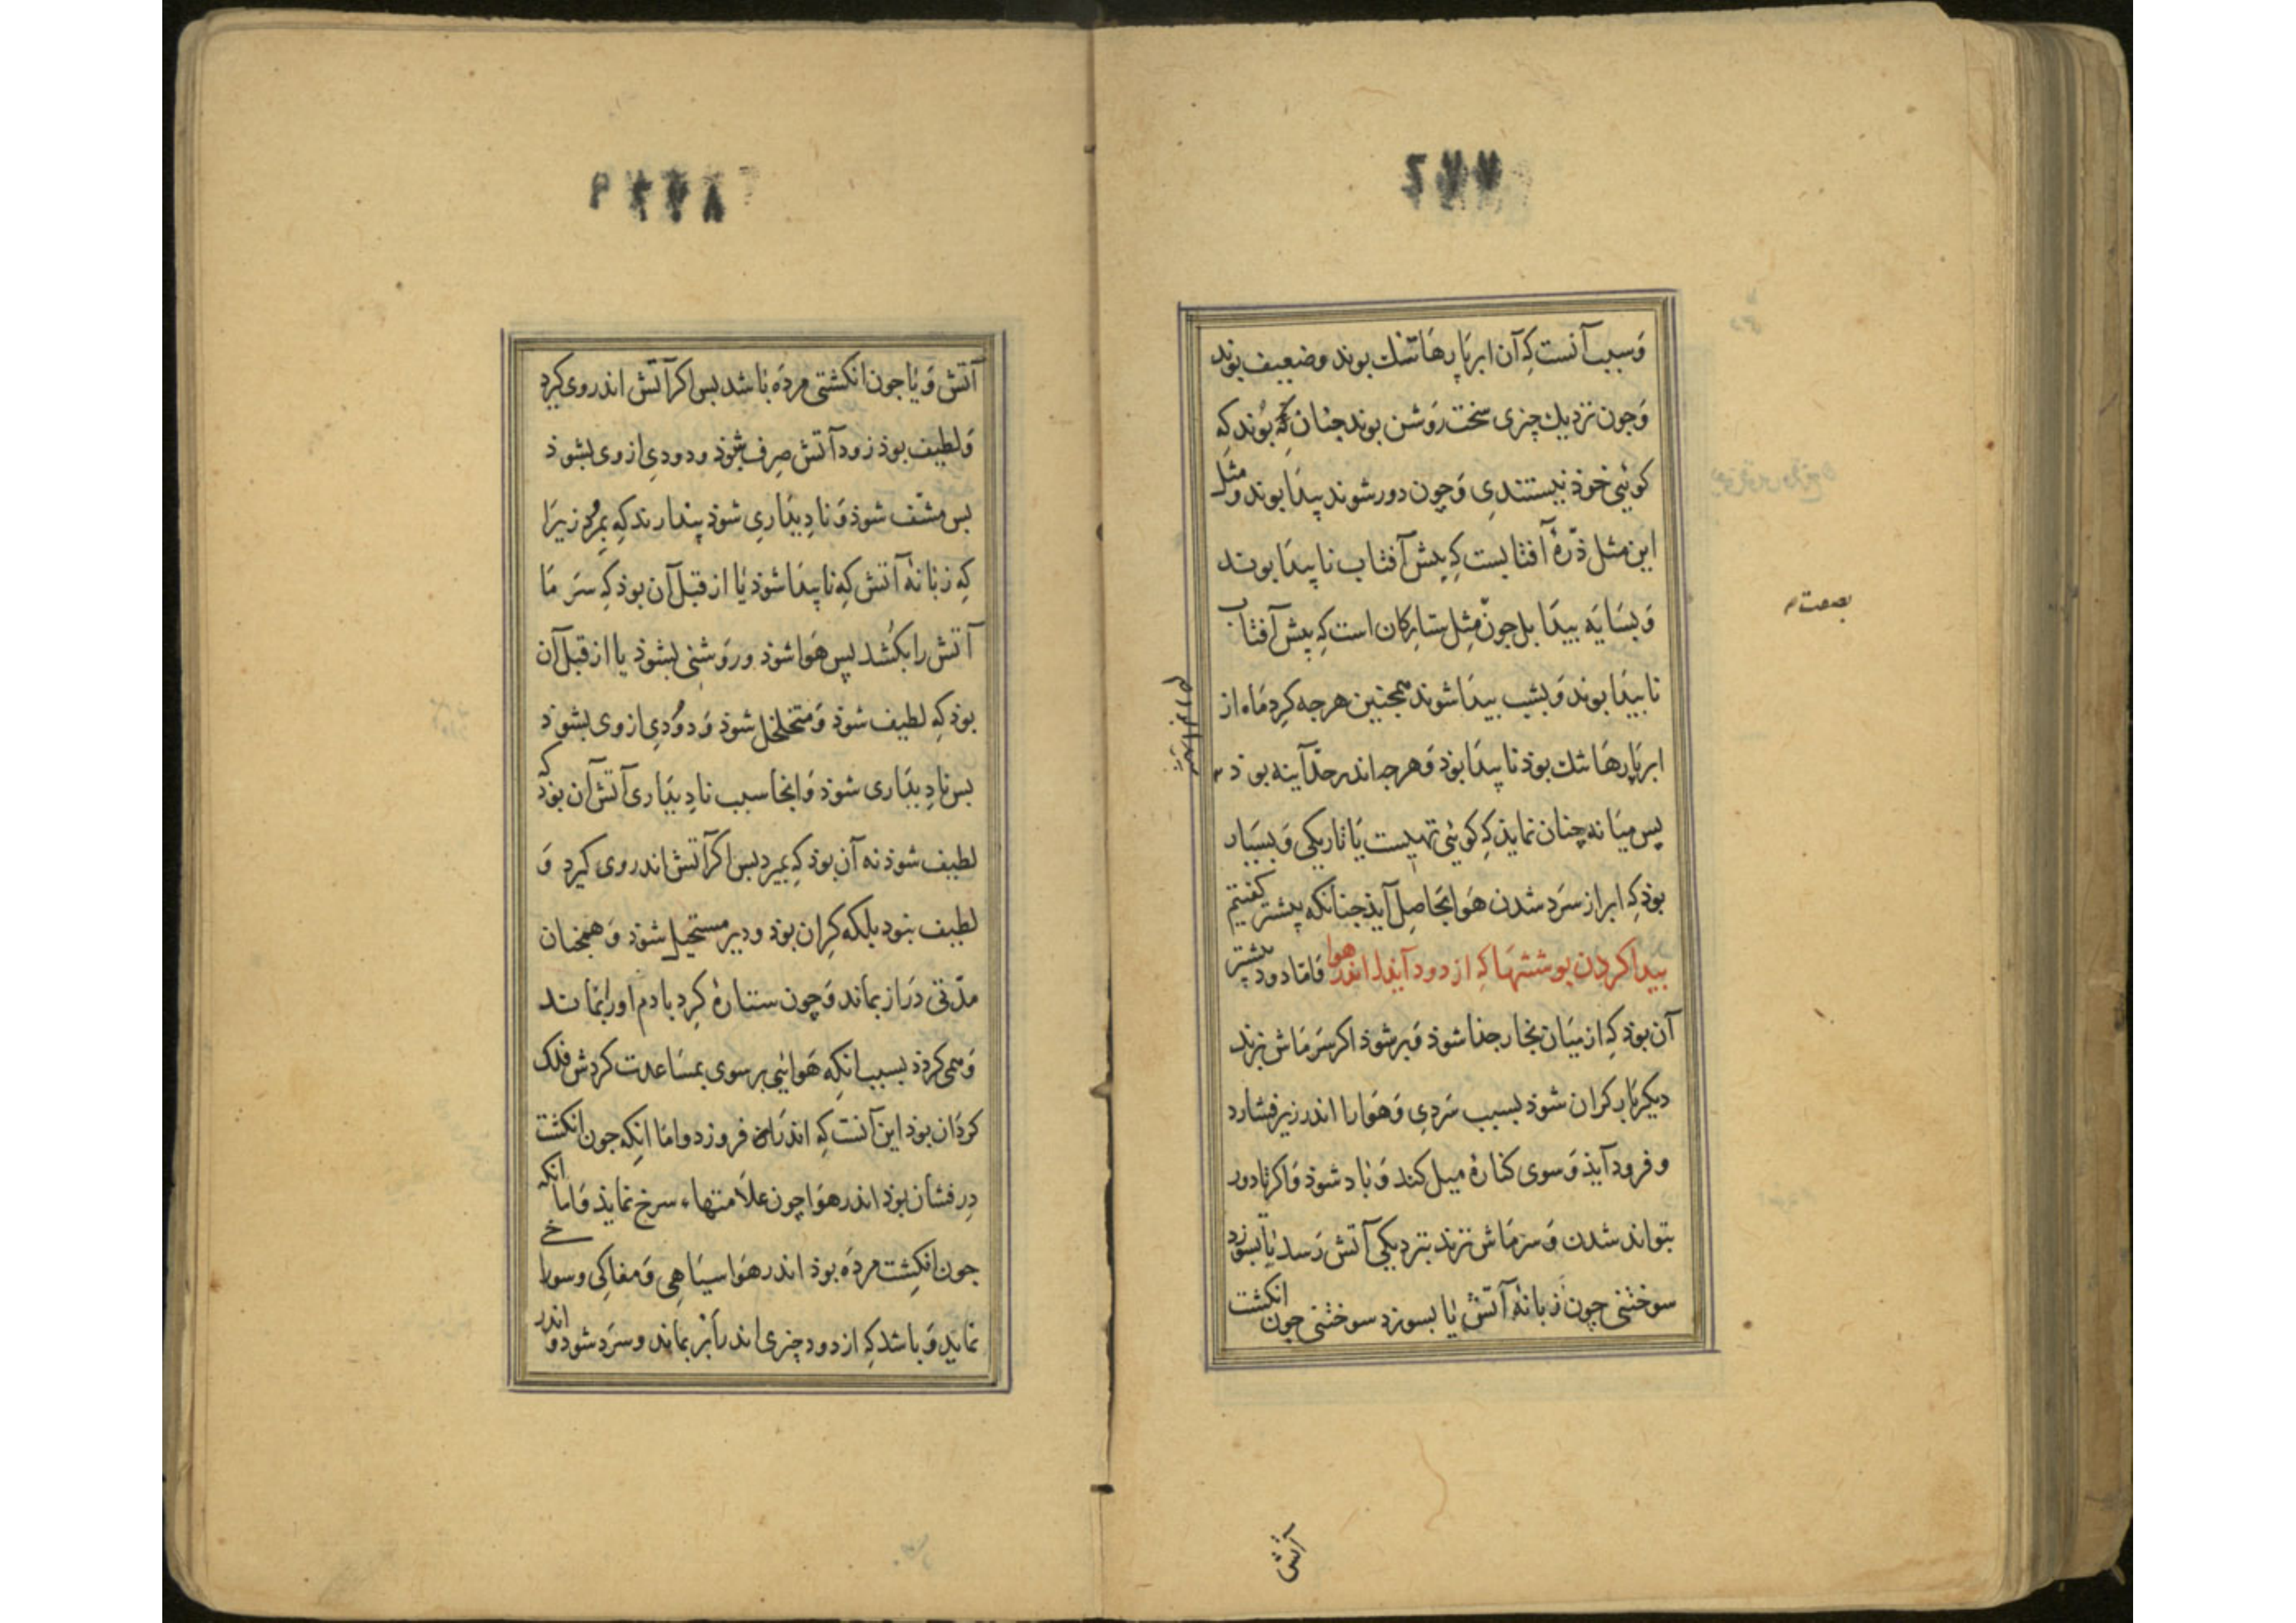 ۲۷۷
وَسبب آنست کِه آن ابرپارهَا تنک بوند وضعیف بوند
وَجون نزدیک چیزی سخت روَشن بوند جنان کِه بُوند کِه
کوئیی خوذ نیستندیِ وَچون دور شوند پیدَا بوند وَمثل
این مثل ذرّهٔ آفتابست کِه پیش آفتاب ناپیدَا بوند
وَبسَایَه پیدَا بل جون مثِل ستارکان است کِه پیش آفتاب
ناپیدَا بوند وَبشب پیدَا شوند همجنین هرجه کِردِ مَاه از
ابرپَارهَا تنک بوذ ناپیدَا بوذ وَهرجه اندر حدّ آینه بوذ
پس میَانه چنان نمایذ کِه کوئیی تهیست یَا تاریکی وَبسیَار
بوذ کِه ابر از سَرد شدن هوَا بحَاصِل آیذ جنانکه پیشتر کفتیم
پیدا کردن بوششهَا کِه از دود آیذ اندر هوا فَامّا دود بیشتر
آن بوذ کِه از میَان بخار جذا شوذ وَبر شوذ اکر سَرمَاش بزند
دیکربَار کران شوذ بسبب سَردیِ وَهوَا را اندر زیر فشارد
و فرود آیذ وَسوی کنارهٔ میل کند وَباد شوذ وَاکر تا دور
بتواند شدن وَسرمَاش نزند بنزدیکی آتش رَسد یَا بسوزد
سوختنی چون زبانهٔ آتش یا بسوزد سوختنی جون انکشت
آتش
آتش وَیَا جون انکشتی مردَه بَاشد بس اکر آتش اندر وی کیرد
وَلطیف بوذ زود آتش صِرف شوذ ودودیِ از وی بشوذ
بس مشّف شوذ وَنادِیدَاریِ شوذ پندارند کِه بِمُرد زیرَا
کِه زبانهٔ آتش کِه ناپیدَا شوذ یَا از قبل آن بوذ کِه سَرمَا
آتش را بکُشد پس هوَا شوذ وروَشنی بشوذ یا از قبل آن
بوذ کِه لطیف شوذ وَمتخلخل شوذ وَدوُدیِ از وی بشوذ
بس نادِیدَاری شوذ وَاینجا سبب نادِیدَاری آتش آن بوذ کِه
لطیف شوذ نه آن بوذ کِه بمیرد بس اکر آتش اندر وی کیرد وَ
لطیف نبود بلکه کِران بوذ ودیر مستحیل شوذ وَهمجنان
مدّتی درَاز بماند وَچون ستارهٔ کِرد بادم اورا نماند
وَهمی کرذذ بسبب انکِه هوَائیی بر سوی بمسَاعدت کردش فلک
کردَان بوذ این آنست کِه اندر فروزد وامَا انکِه جون انکشت
دِرفشان بوذ اندر هوَا چون علاَمتهاء سرخ نمایذ وَاما انکه
جون انکِشت مردَه بوذ اندر هوَا سیَاهیِ وَمغاکی وسورا
خ
نماید وَباشد کِه از دود چیزی اندر ابر بماند وسَرد شود واندر